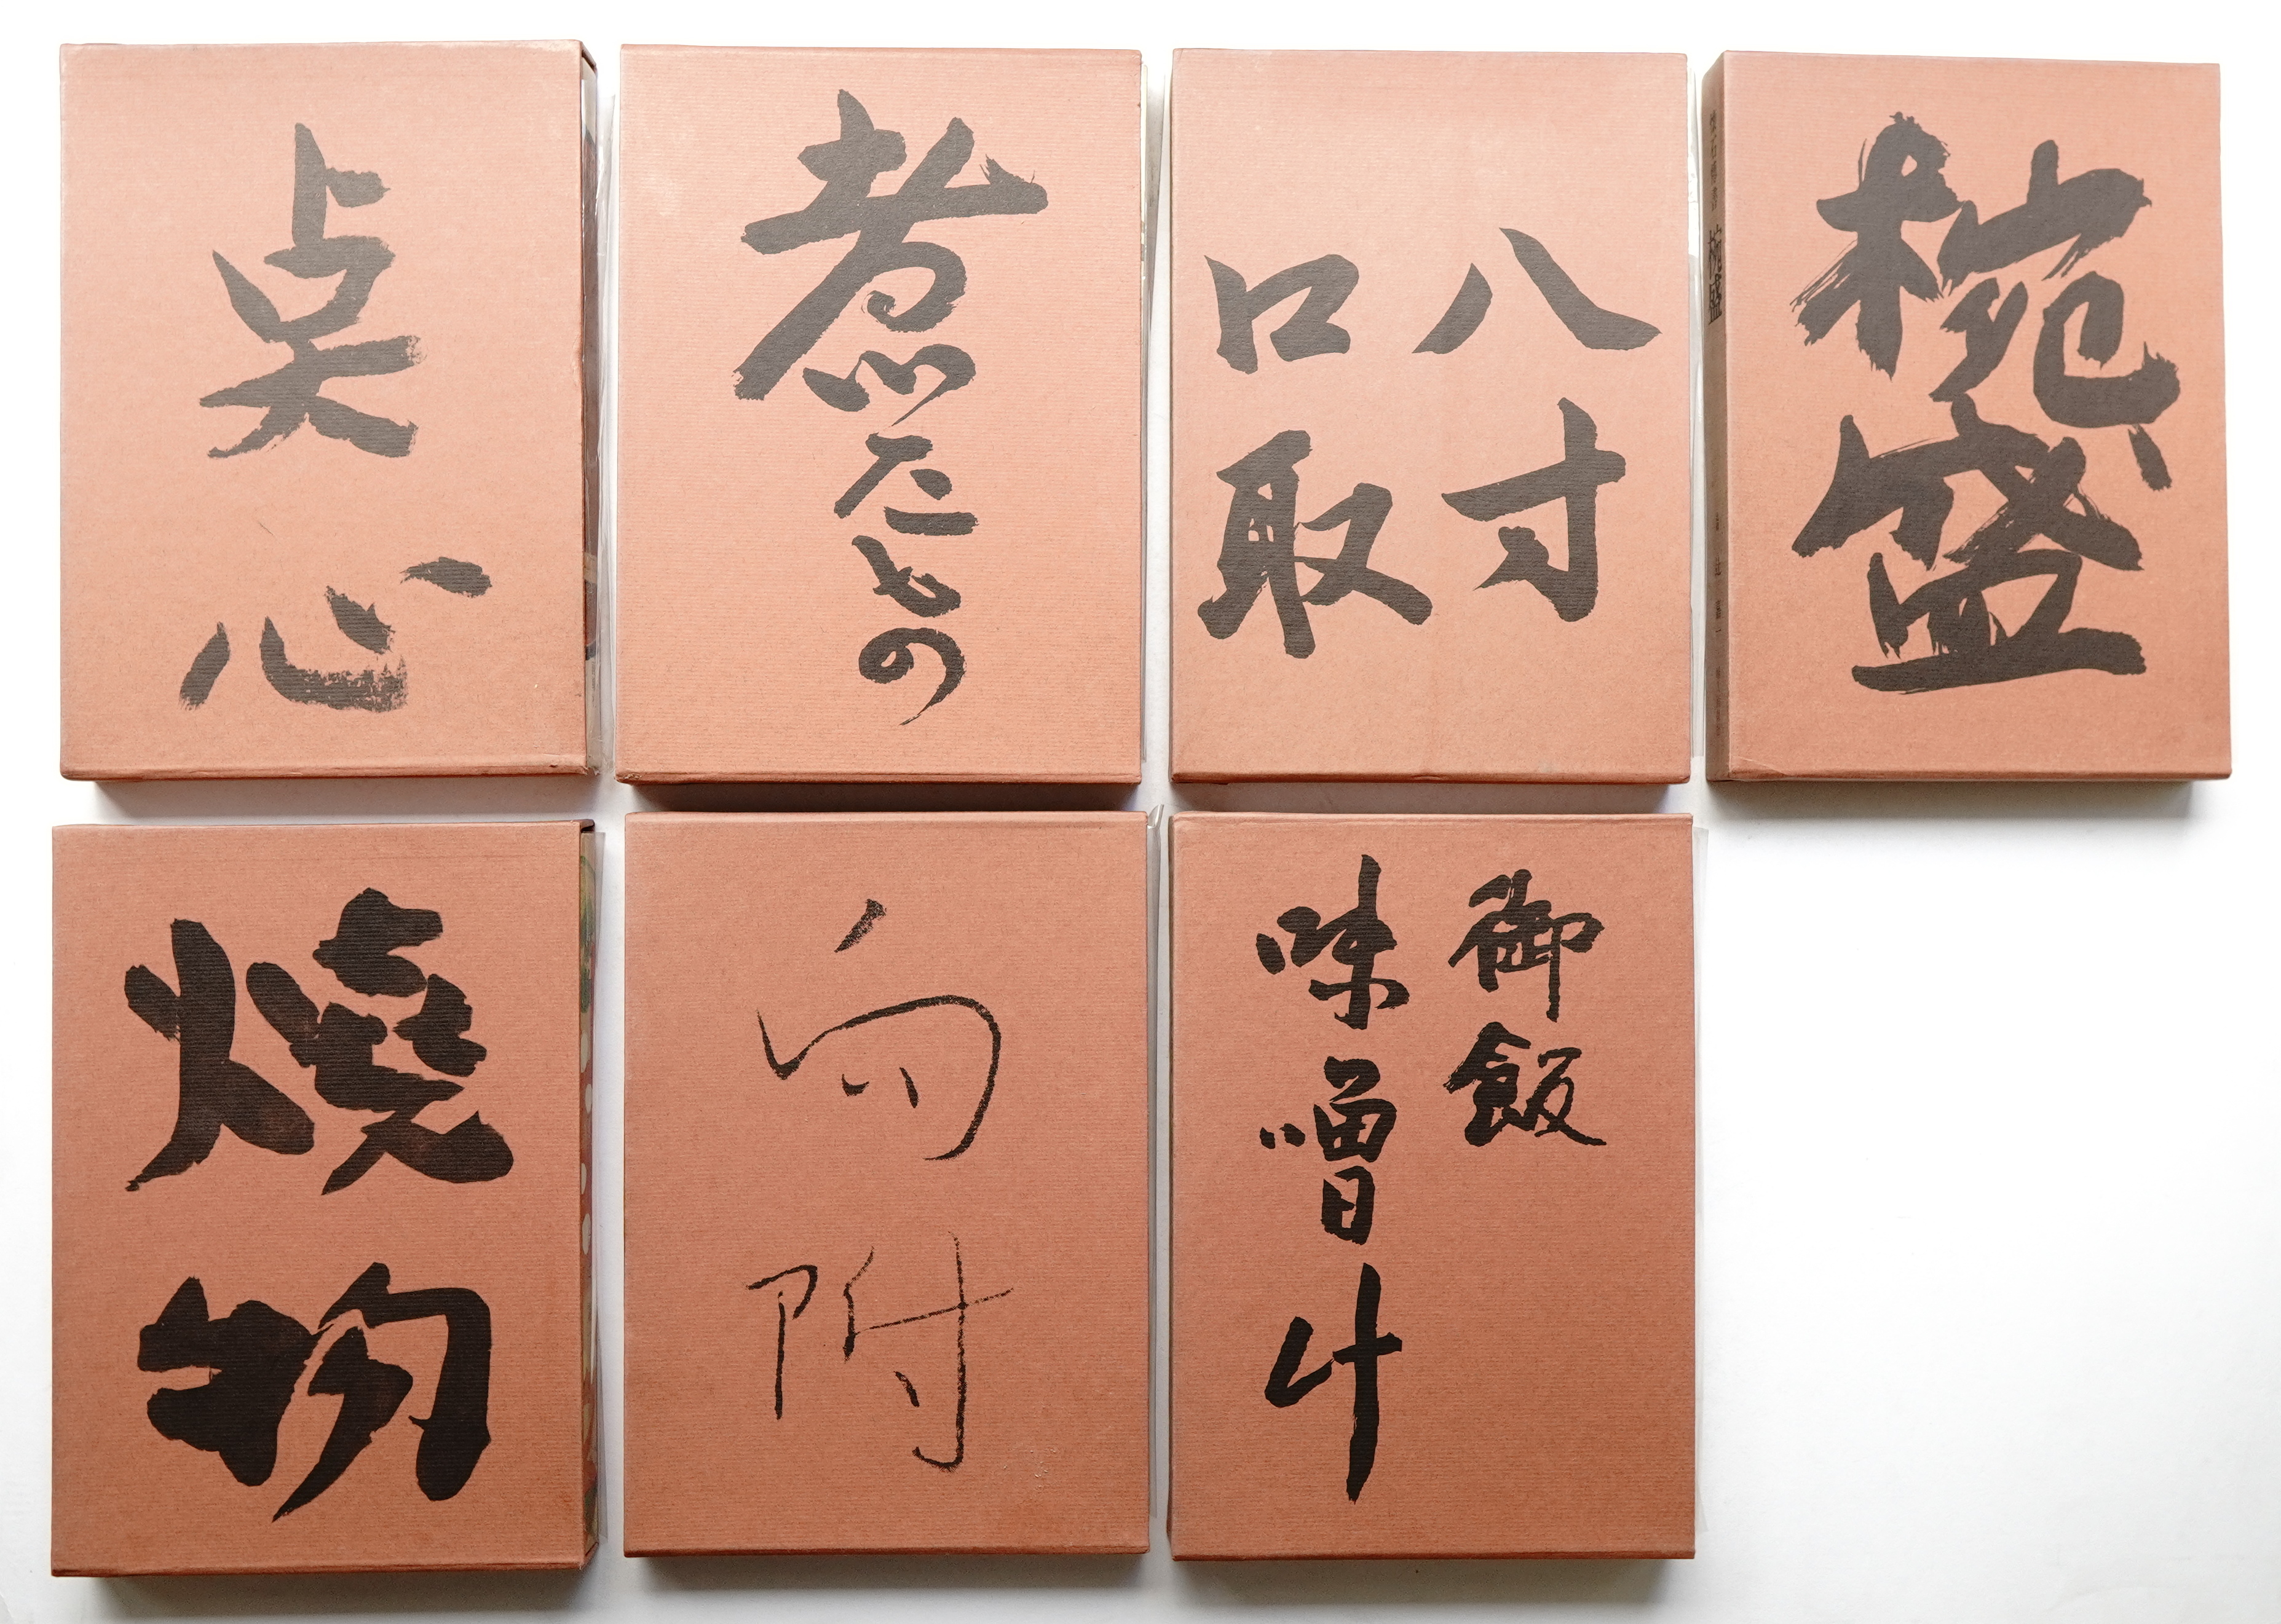 点心
煮たもの
八寸
口取
椀盛
椀盛
辻嘉一
焼物
向附
御飯
味噌汁